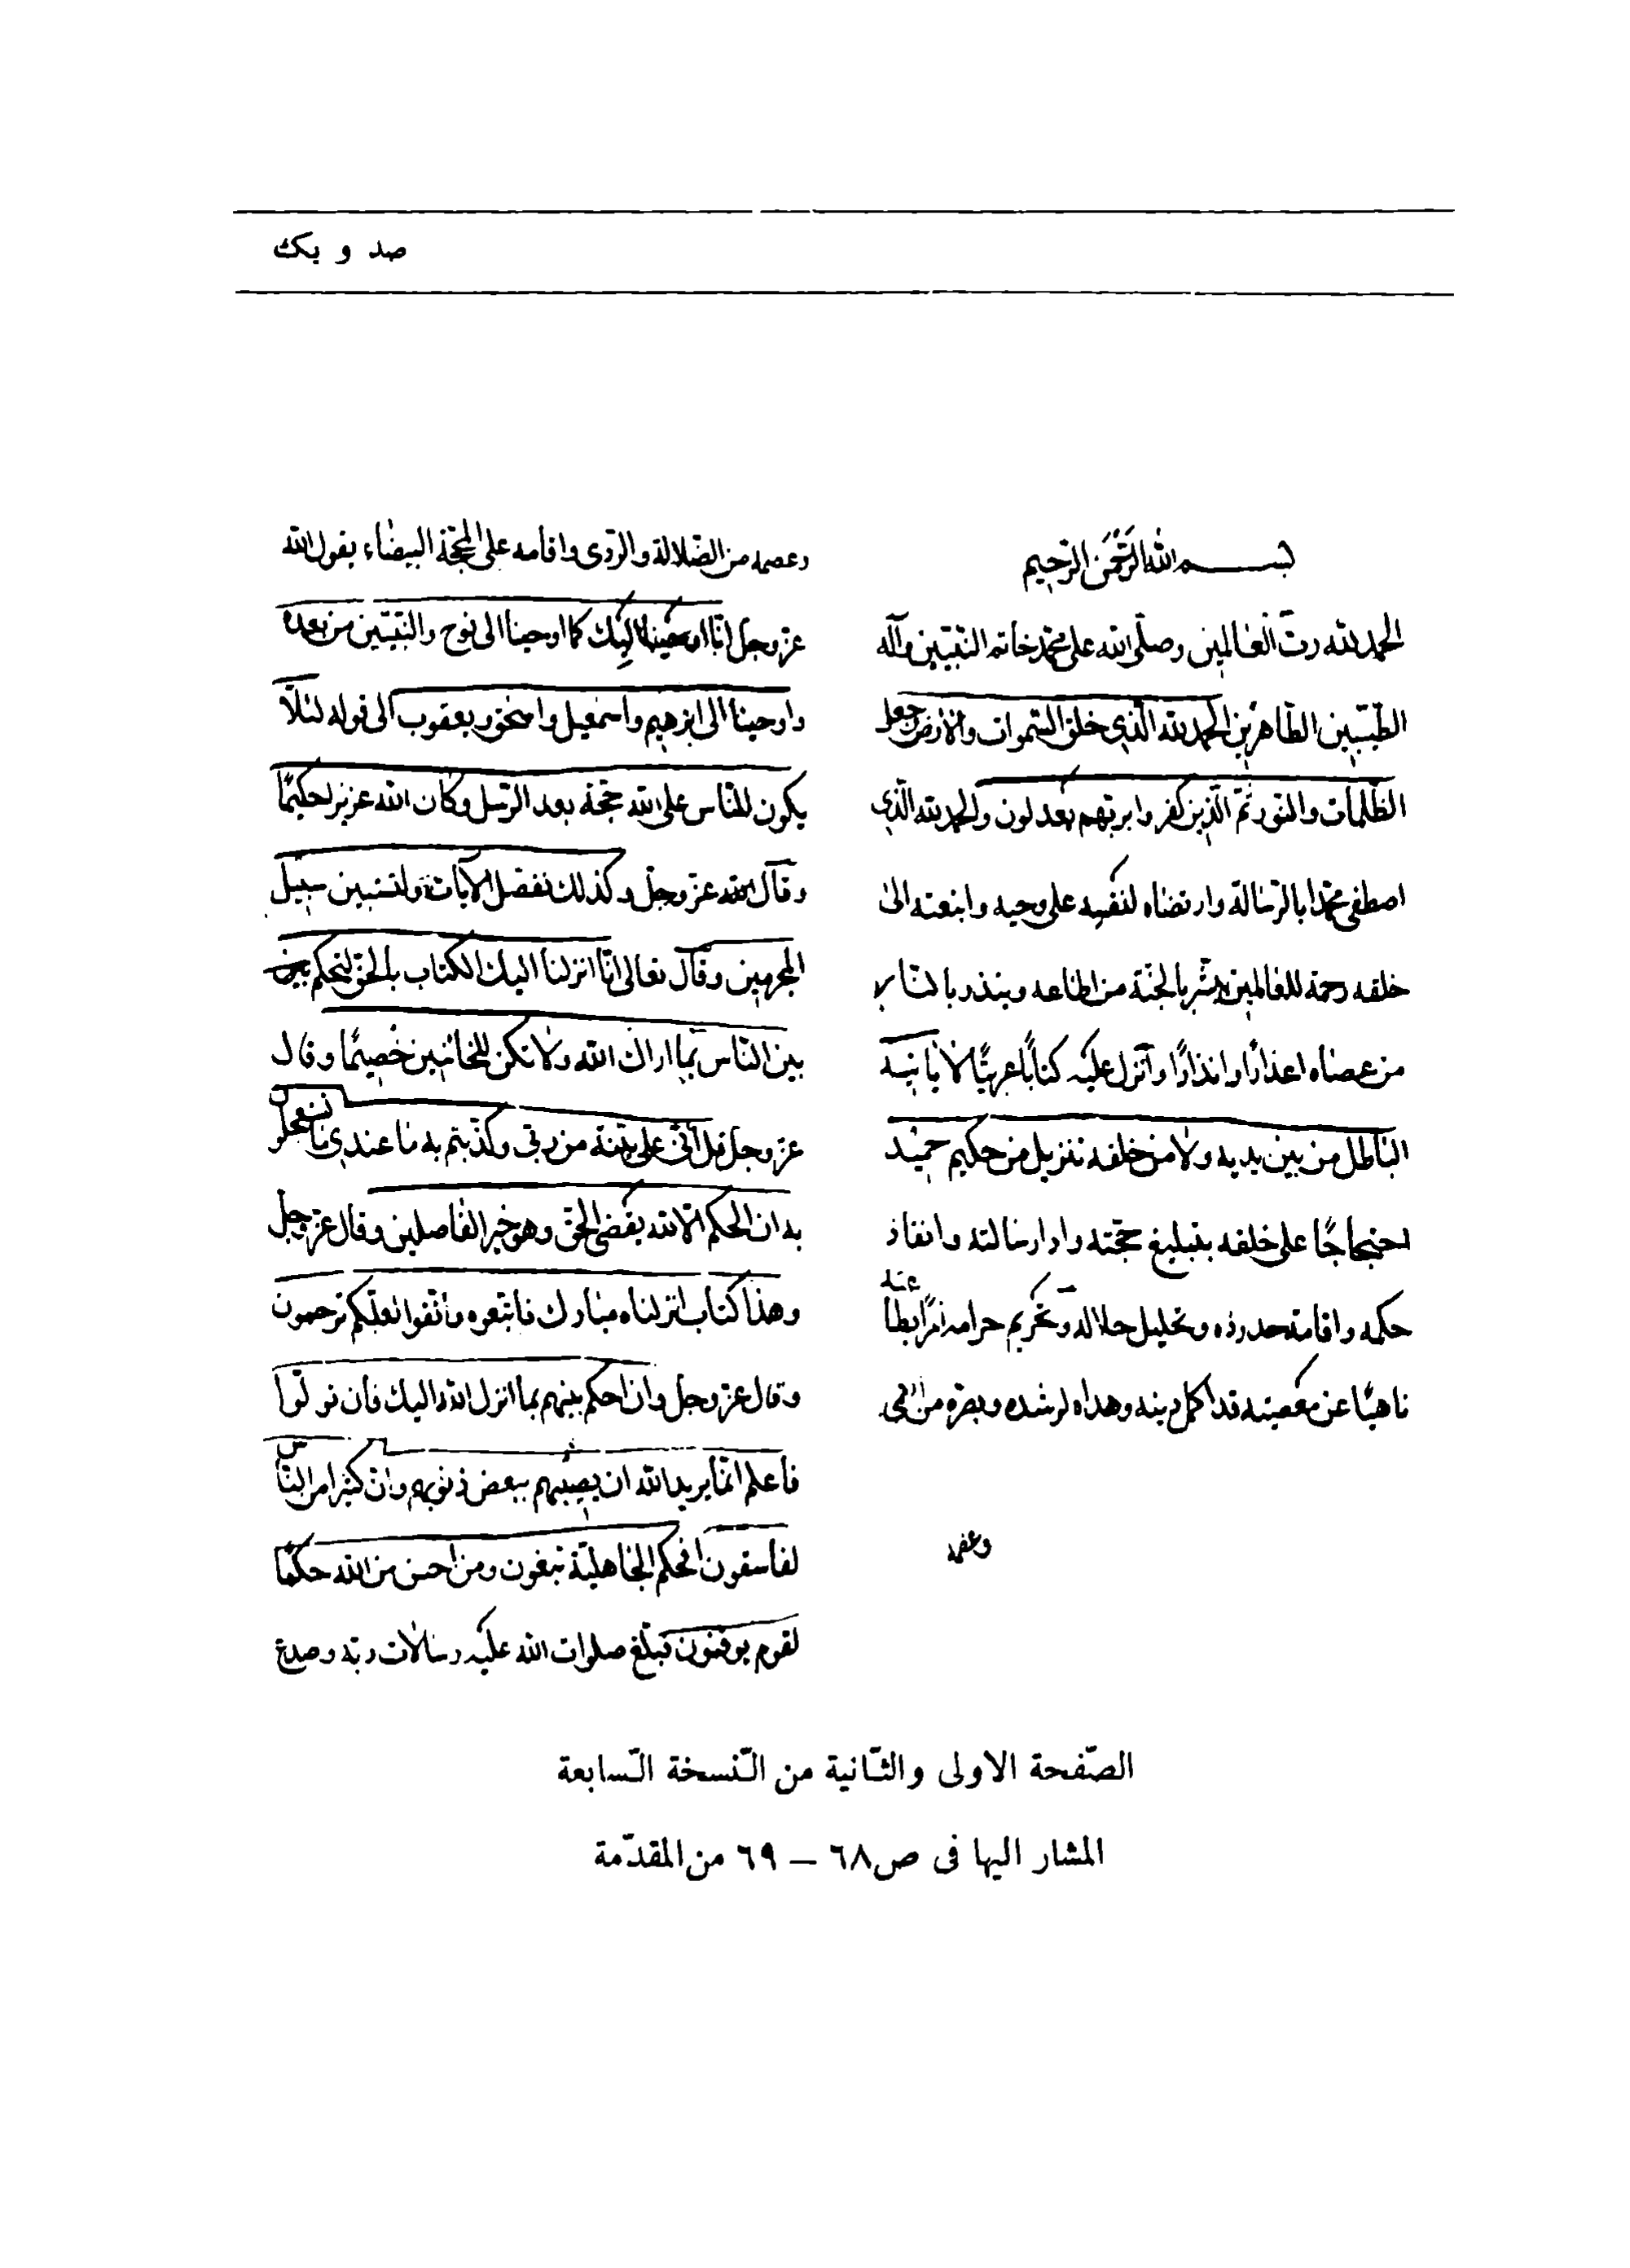 صد و یک
بسم الله الرّحمن الرّحيم
الحمد لله ربّ العالمين وصلّى الله على محمّد خاتم النّبيّين وآله
الطّيّبين الطّاهرين الحمد لله الّذي خلق السّموات والارض وجعل
الظّلمات والنّور ثمّ الّذين كفروا بربّهم يعدلون والحمد لله الّذي
اصطفى محمّدا بالرّسالة وارتضاه لنفسه على وحيه وابتعثه الى
خلقه رحمة للعالمين يبشّر بالجنّة من اطاعه وينذر بالنّار
من عصاه اعذارًا وانذارًا وانزل عليه كتابًا عربيًّا لا يأتيه
الباطل من بين يديه ولا من خلفه تنزيل من حكيم حميد
احتجاجًا على خلقه بتبليغ حجّته واداء رسالته وانفاذ
حكمه واقامة حدوده وتحليل حلاله وتحريم حرامه امرًا بطاعته
ناهيًا عن معصيته قد اكمل دينه وهداه لرشده وبصّره من العمى
وعصمه
وعصمه من الضّلالة والرّدى واقامه على المحجّة البيضاء يقول الله
عزّ وجلّ انّا اوحينا اليك كما اوحينا الى نوح والنّبيّين من بعده
واوحينا الى ابرهيم واسمعيل واسحق ويعقوب الى قوله لئلّا
يكون للنّاس على الله حجّة بعد الرّسل وكان الله عزيزا حكيمًا
وقال الله عزّ وجلّ وكذلك نفصّل الآيات ولتستبين سبيل
المجرمين وقال تعالى انّا انزلنا اليك الكتاب بالحقّ لتحكم بين
بين النّاس بما اراك الله ولا تكن للخائنين خصيمًا وقال
عزّ وجلّ قل انّى على بيّنة من ربّي وكذّبتم به ما عندي ما تستعجلون
به ان الحكم الّا لله يقضى الحقّ وهو خير الفاصلين وقال عزّ وجلّ
وهذا كتاب انزلناه مبارك فاتّبعوه واتّقوا لعلّكم ترحمون
وقال عزّ وجلّ وان احكم بينهم بما انزل الله اليك فان تولّوا
فاعلم انّما يريد الله ان يصيبهم ببعض ذنوبهم وانّ كثيرا من النّاس
لفاسقون افحكم الجاهليّة تبغون ومن احسن من الله حكمًا
لقوم يوقنون فبلّغ صلوات الله عليه رسالات ربّه وصدع
الصّفحة الاولى والثّانية من النّسخة السّابعة
المشار اليها فى ص٦٨ – ٦٩ من المقدّمة